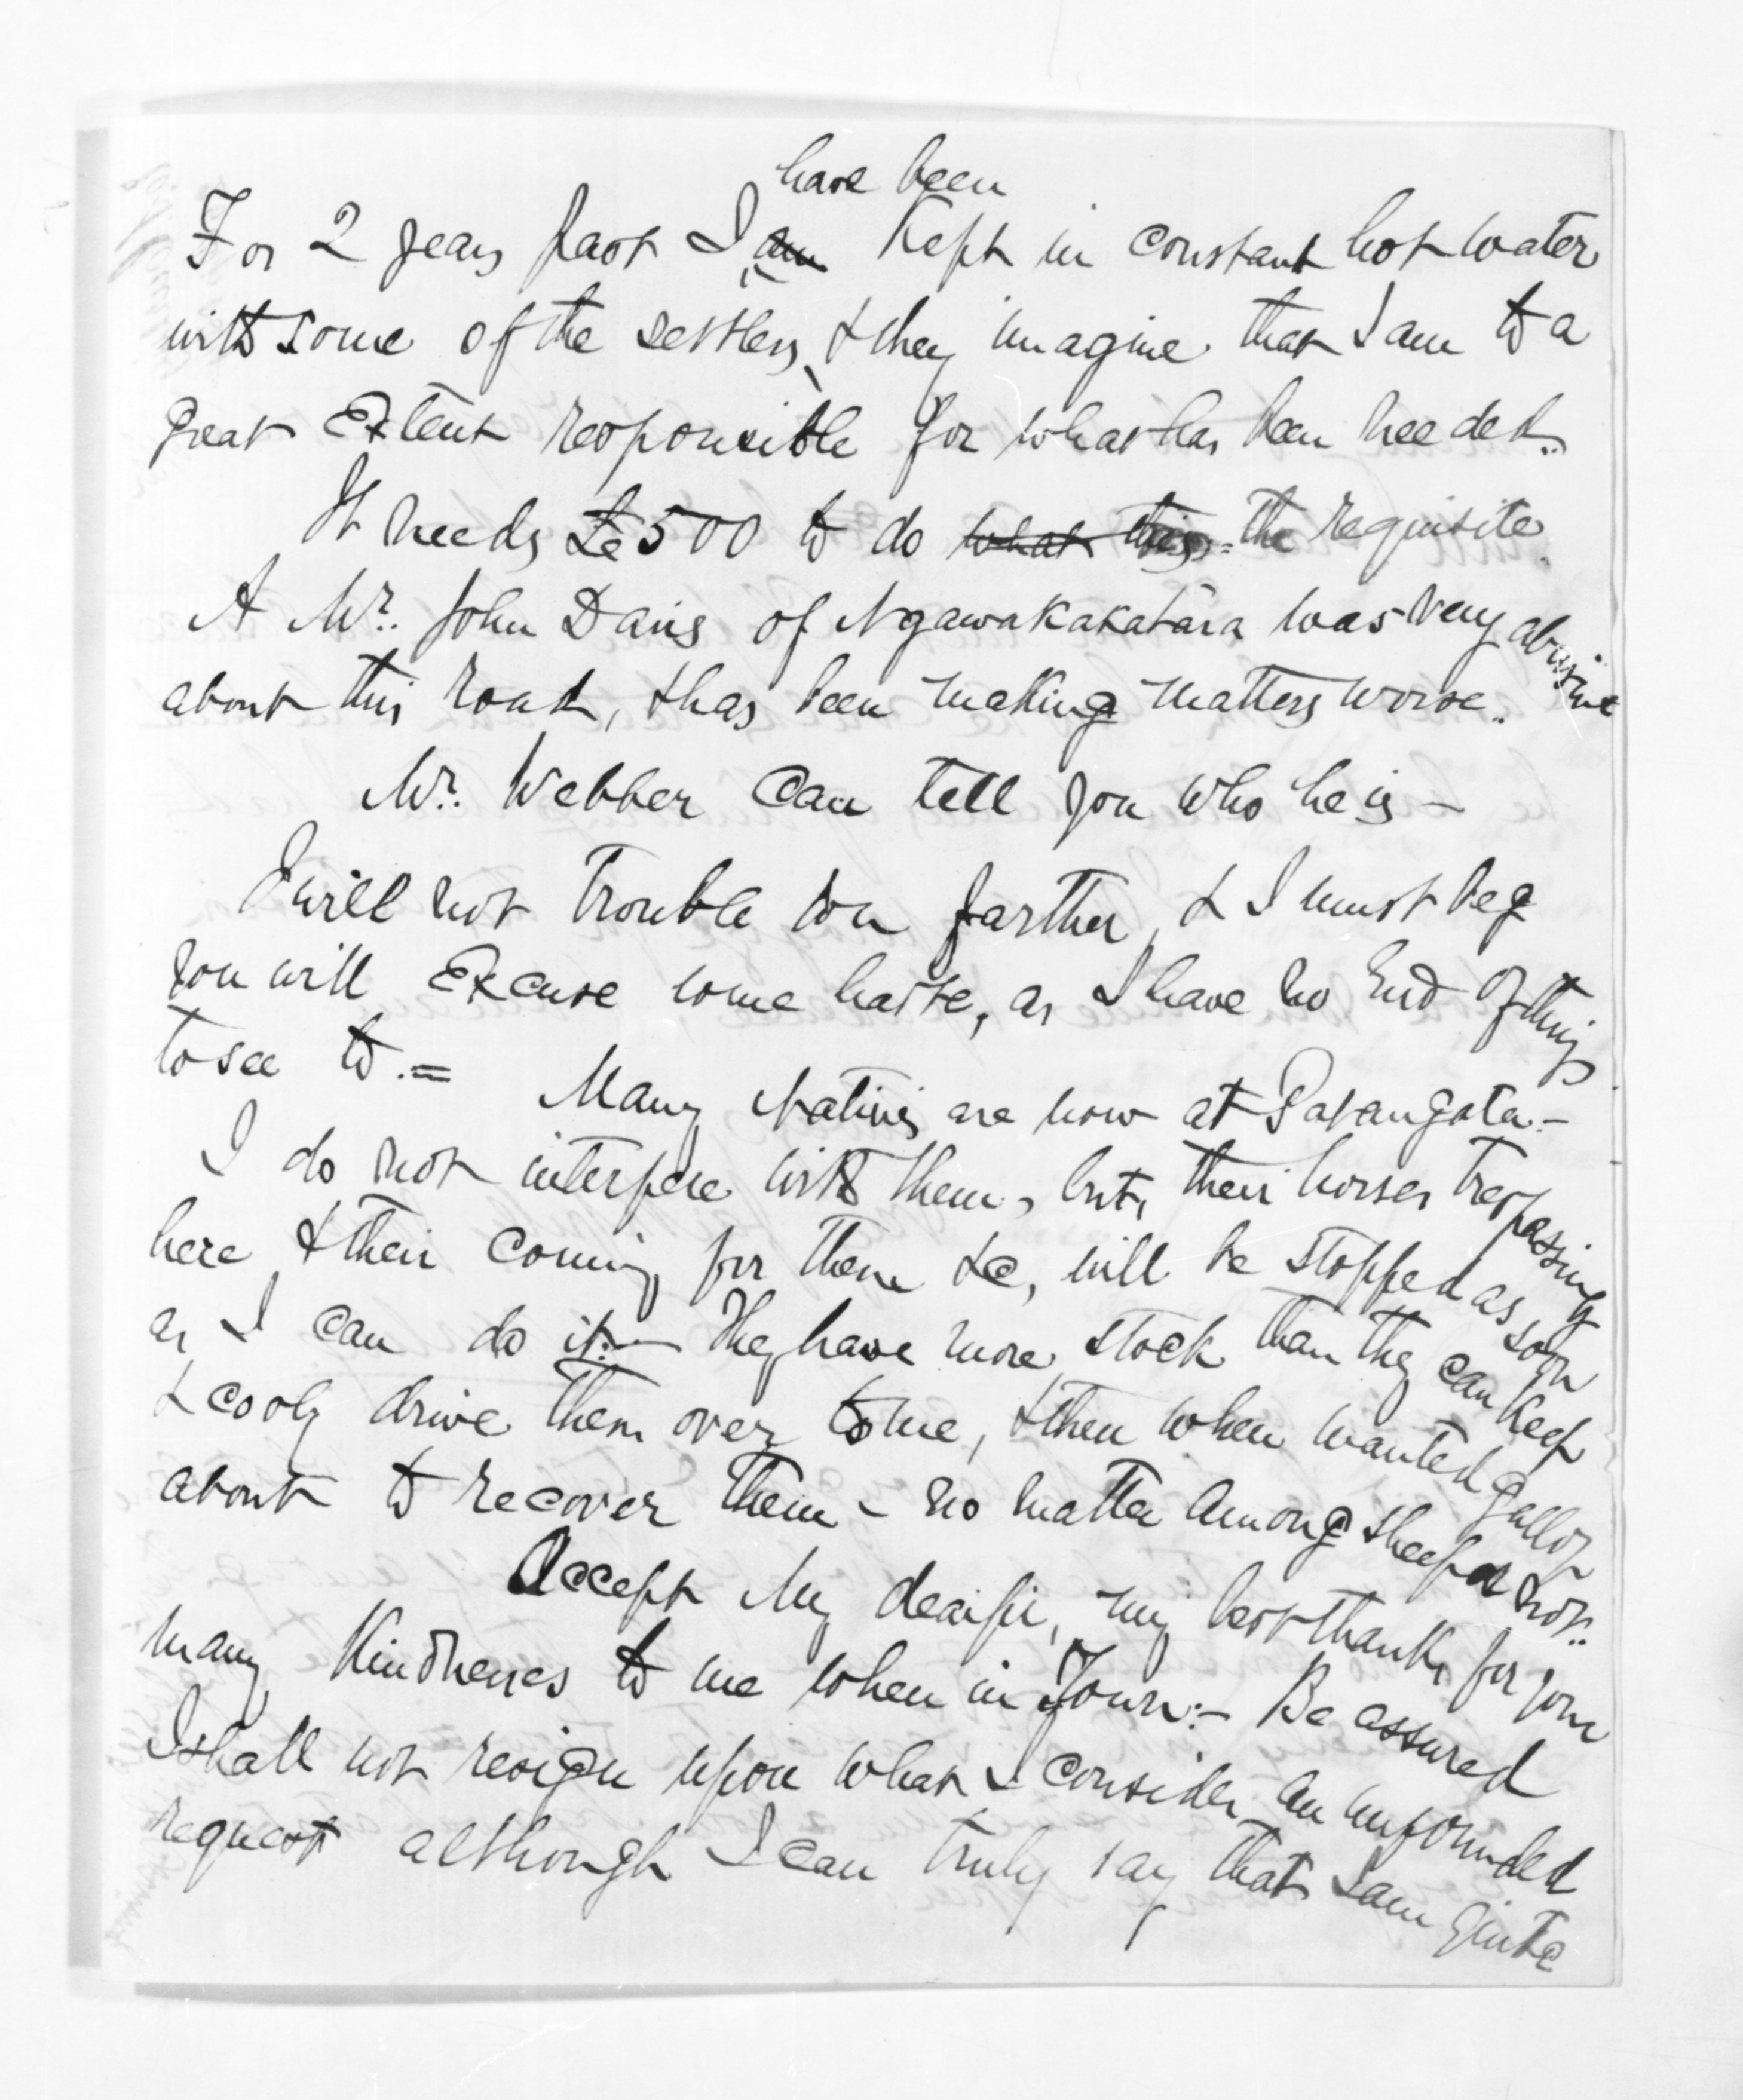 have been
For 2 years past I am Kept in constant hot water
with some of the settlers, & they imagine that I am to a
great Extent responsible for what has been needed.
It needs £500 to do what this = the requisite
A Mr. John Davis of Ngawakakatara was very abusive
about this road, & has been making matters worse.
Mr. Webber can tell you who he is –
I will not trouble you farther, & I must beg
you will Excuse some haste, as I have no End of things
to see to. = Many Natives are now at Patangata. –
I do not interfere with them, but, their horses trespassing
here & their coming for them &c, will be stopped as soon
as I can do it. – They have more stock than they can keep
& cooly drive them over to me, & then when wanted gallop
about to recover them – no matter among sheep or not.
Accept My dear sir, my best thanks for your
many Kindnesses to me when in Town: – Be assured
I shall not resign upon what I consider an unfounded
request although I can truly say that I am quite